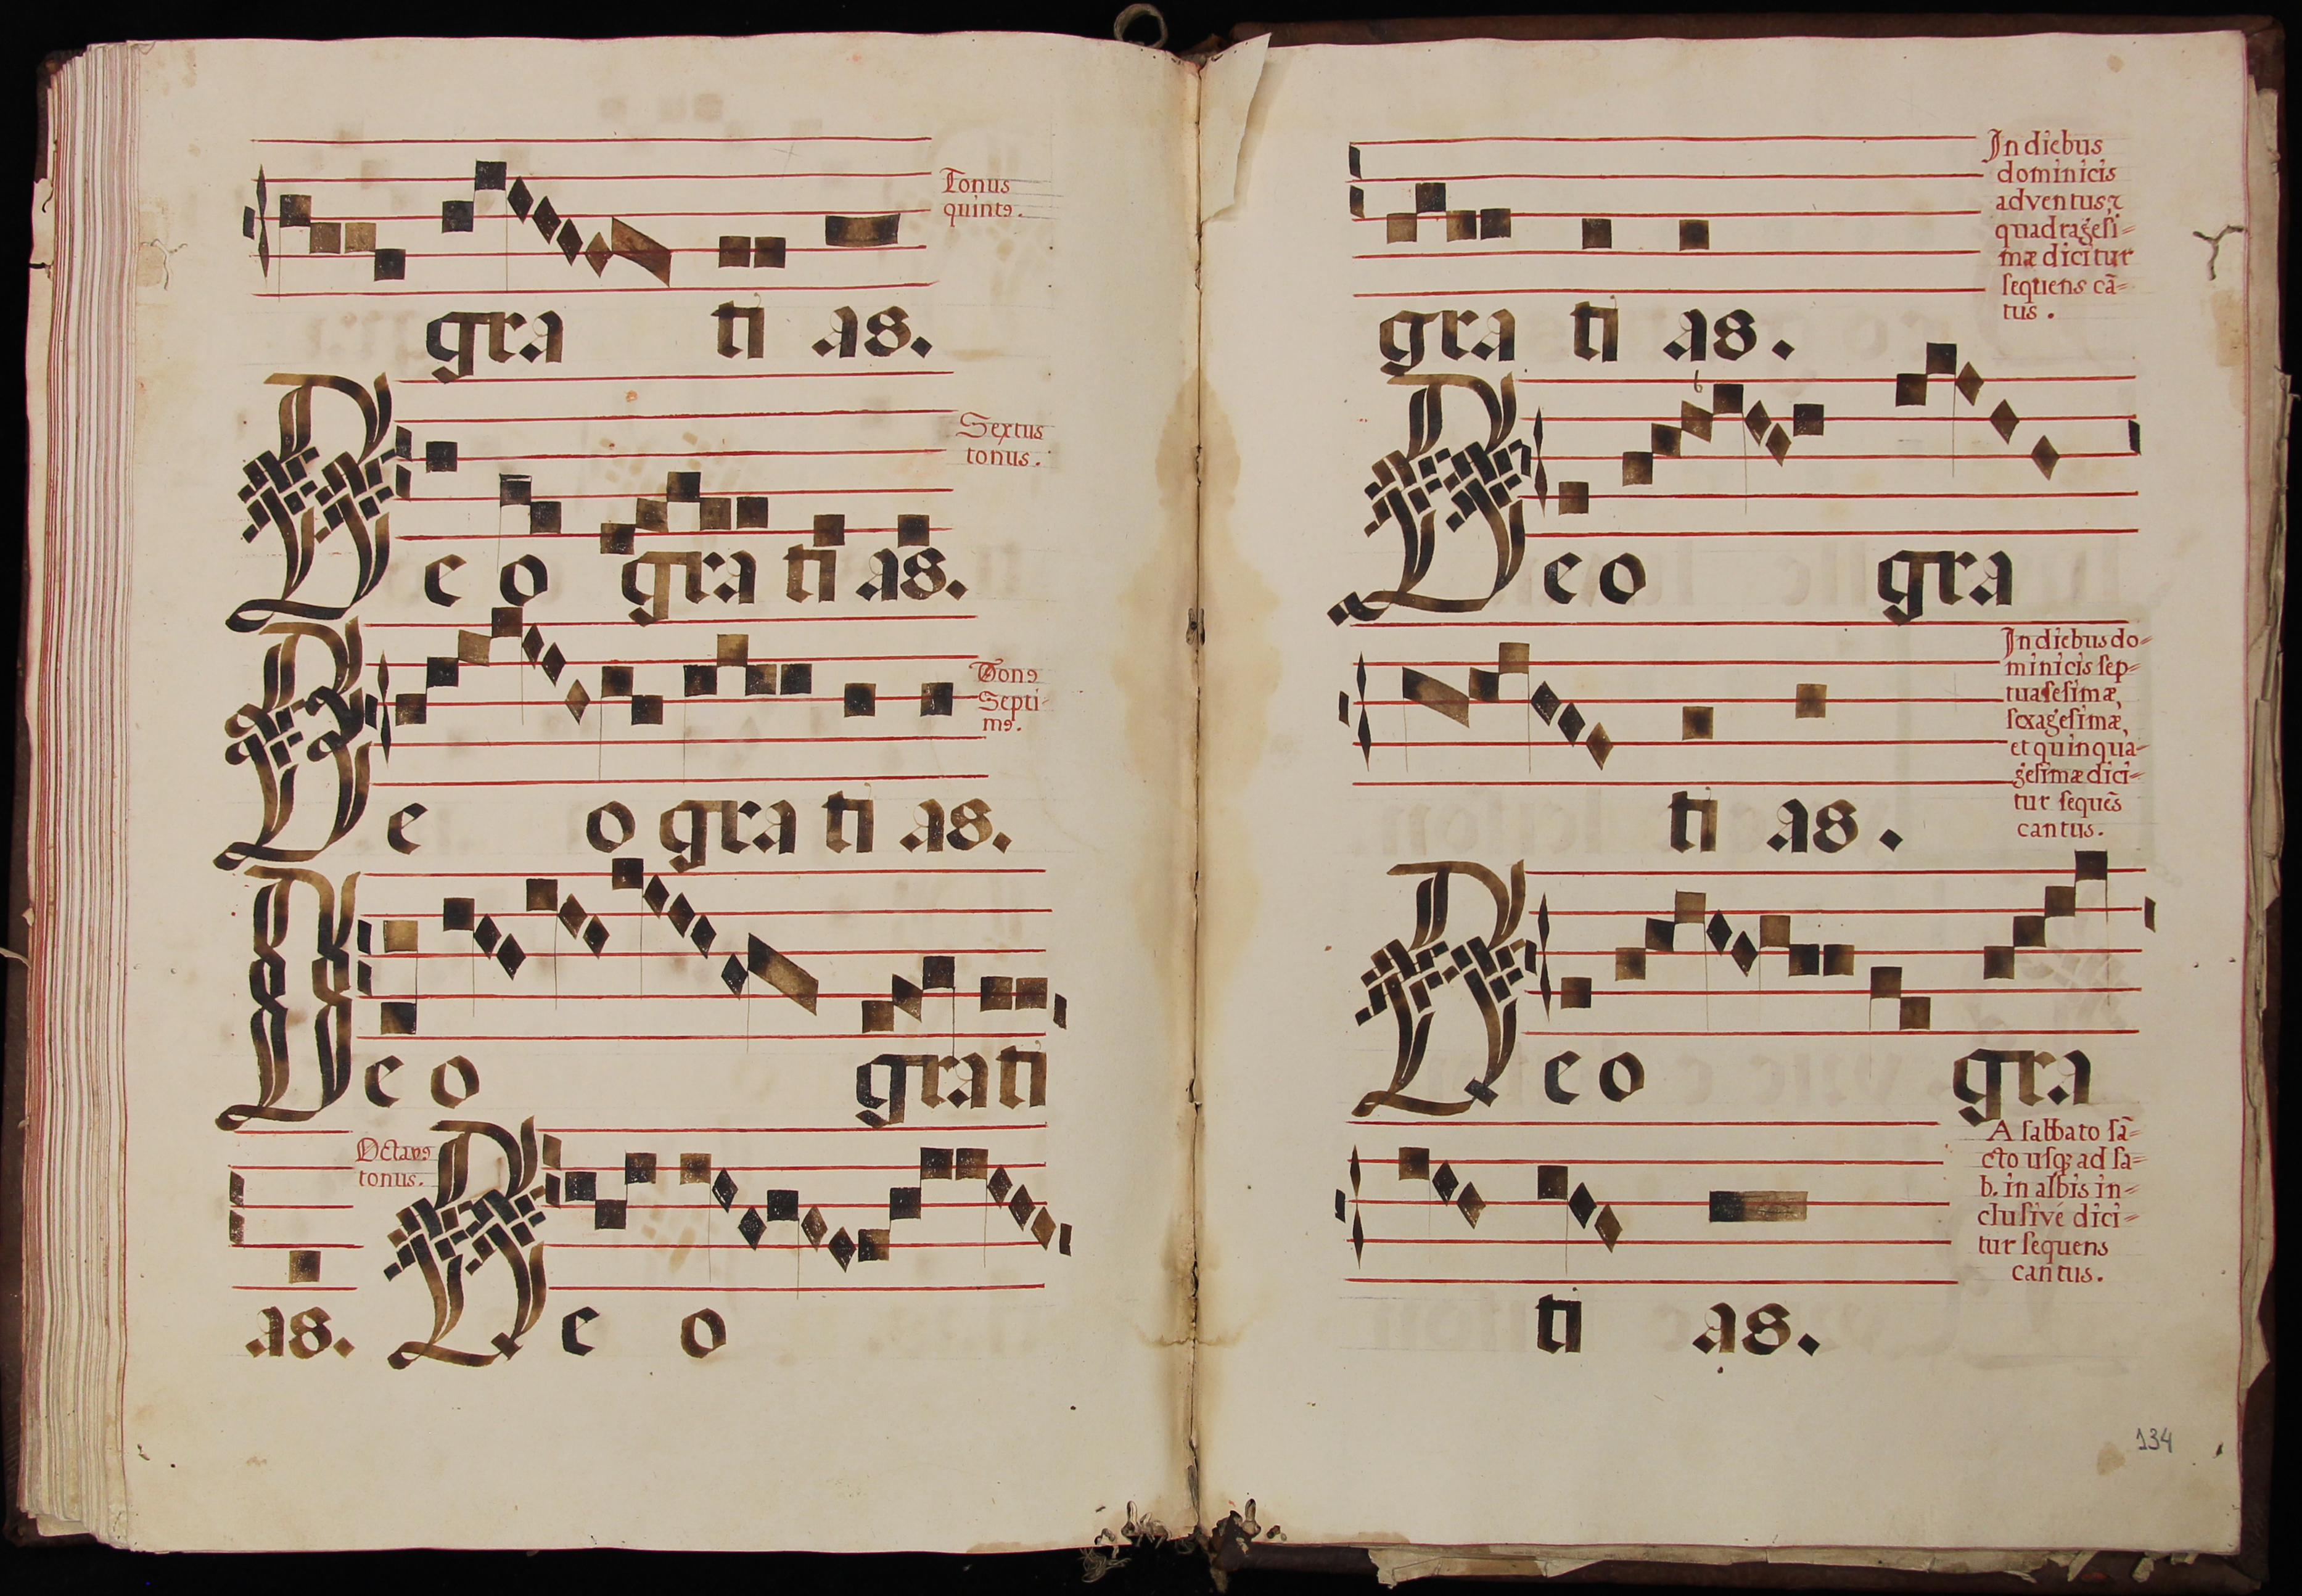 Tonus
quintꝰ.
gra ti as.
Sextus
tonus.
Deo gratias.
Tonꝰ
Septi-
mꝰ.
Deo gratias.
Deo grati
Octavꝰ
tonus.
as. Deo
In diebus
dominicis
adventus, ⁊
quadragesi=
mæ dicitur
sequens cã=
tus.
gra ti as.
b
Deo gra
In diebus do=
minicis sep=
tuasesimæ,
sexagesimæ,
et quinqua=
gesimæ dici=
tur sequẽs
cantus.
ti as.
Deo gra
A sabbato sã=
cto usqꝫ ad sa=
b. in albis in=
clusivé dici=
tur sequens
cantus.
ti as.
134